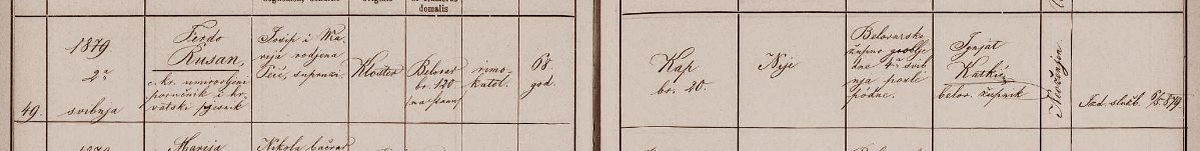 domalis
49.
1879.
2a
svibnja
Ferdo
Rusan,
c. kr. umirovljeni
poručnik i hr-
vatski pjesnik
Josip i Ma-
rija rodjena
Perć, supruzi.
Kloster
Belovar
br. 120
rimo-
katol.
68
god.
Kap
br. 20.
Nije
Belovarsko
župno groblje
dne 4a svib
nja poslie
podne.
Ignjat
belov. župnik
Izd. službi. 6/5.879.
Marija
Nikola